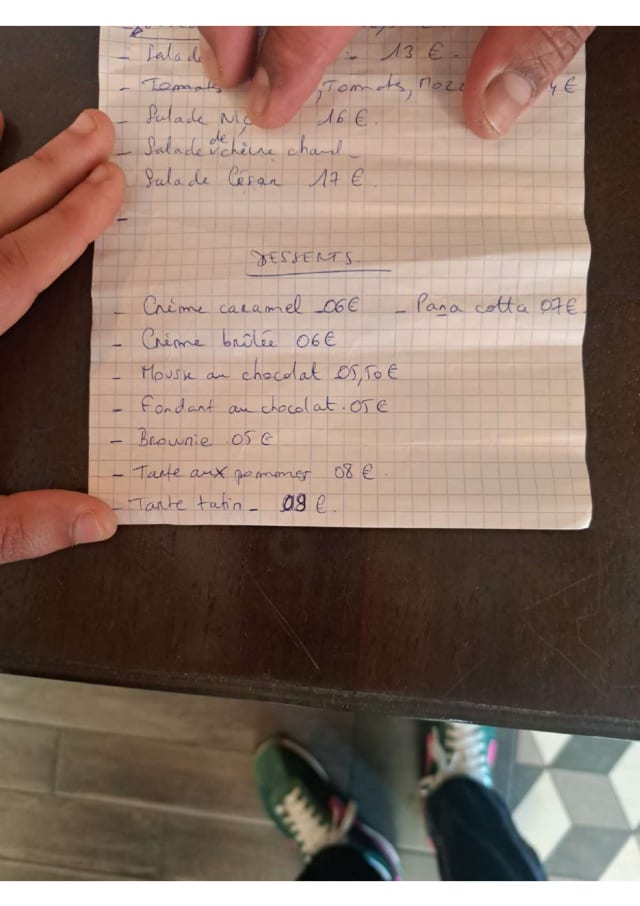 - Salade 13 €.
- Tomats , Tomats, €
- Salade 16 €.
- Salade de chèvre chaud -
- Salade César 17 €
-
DESSERTS
- Crème caramel 06€ - Pana cotta 07€
- Crème brûlée 06€
- Mousse au chocolat 05,50€
- Fondant au chocolat. 05€
- Brownie 05€
- Tarte aux pommes 08€.
- Tarte tatin - 08€.